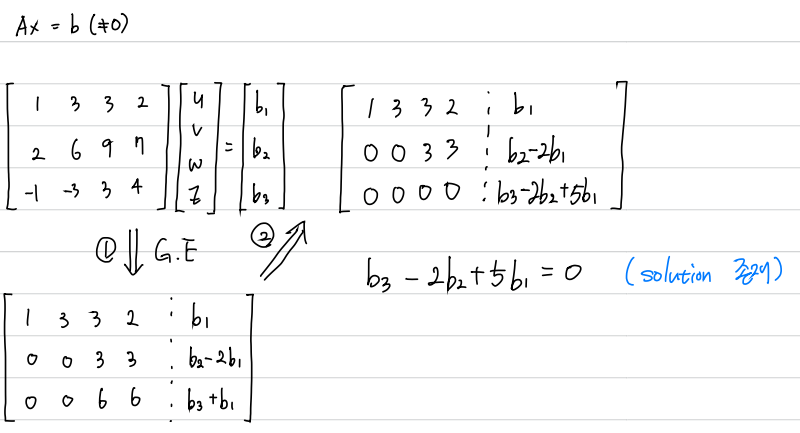 Ax = b (≠0)
[1 3 3 2; 2 6 9 7; -1 -3 3 4] [u; v; w; z] = [b₁; b₂; b₃]
① ⇓ G.E
[1 3 3 2 ⋮ b₁; 0 0 3 3 ⋮ b₂-2b₁; 0 0 6 6 ⋮ b₃+b₁]
② ⇗
[1 3 3 2 ⋮ b₁; 0 0 3 3 ⋮ b₂-2b₁; 0 0 0 0 ⋮ b₃-2b₂+5b₁]
b₃ - 2b₂ + 5b₁ = 0 (solution 존재)